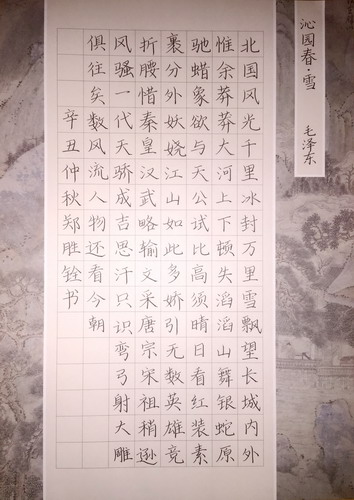 沁园春·雪
毛泽东
北国风光千里冰封万里雪飘望长城内外
惟余莽莽大河上下顿失滔滔山舞银蛇原
驰蜡象欲与天公试比高须晴日看红装素
裹分外妖娆江山如此多娇引无数英雄竞
折腰惜秦皇汉武略输文采唐宗宋祖稍逊
风骚一代天骄成吉思汗只识弯弓射大雕
俱往矣数风流人物还看今朝
辛丑仲秋郑胜铨书